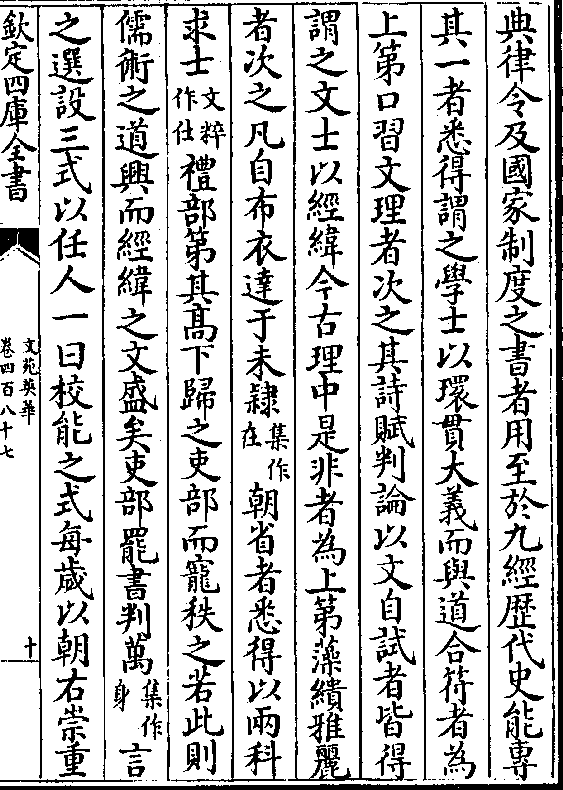 典律令及國家制度之書者用至於九經歴代史能專
其一者悉得謂之學士以環貫大義而與道合符者為
上第口習文理者次之其詩賦判論以文自試者皆得
謂之文士以經緯今古理中是非者為上第藻繢雅麗
者次之凡自布衣達于未隷集作在朝省者悉得以兩科
求士文粹作仕禮部第其髙下歸之吏部而寵秩之若此則
儒術之道興而經緯之文盛矣吏部罷書判萬集作身言
之選設三式以任人一曰校能之式每歳以朝右崇重
欽定四庫全書
文苑英華
卷四百八十七
十